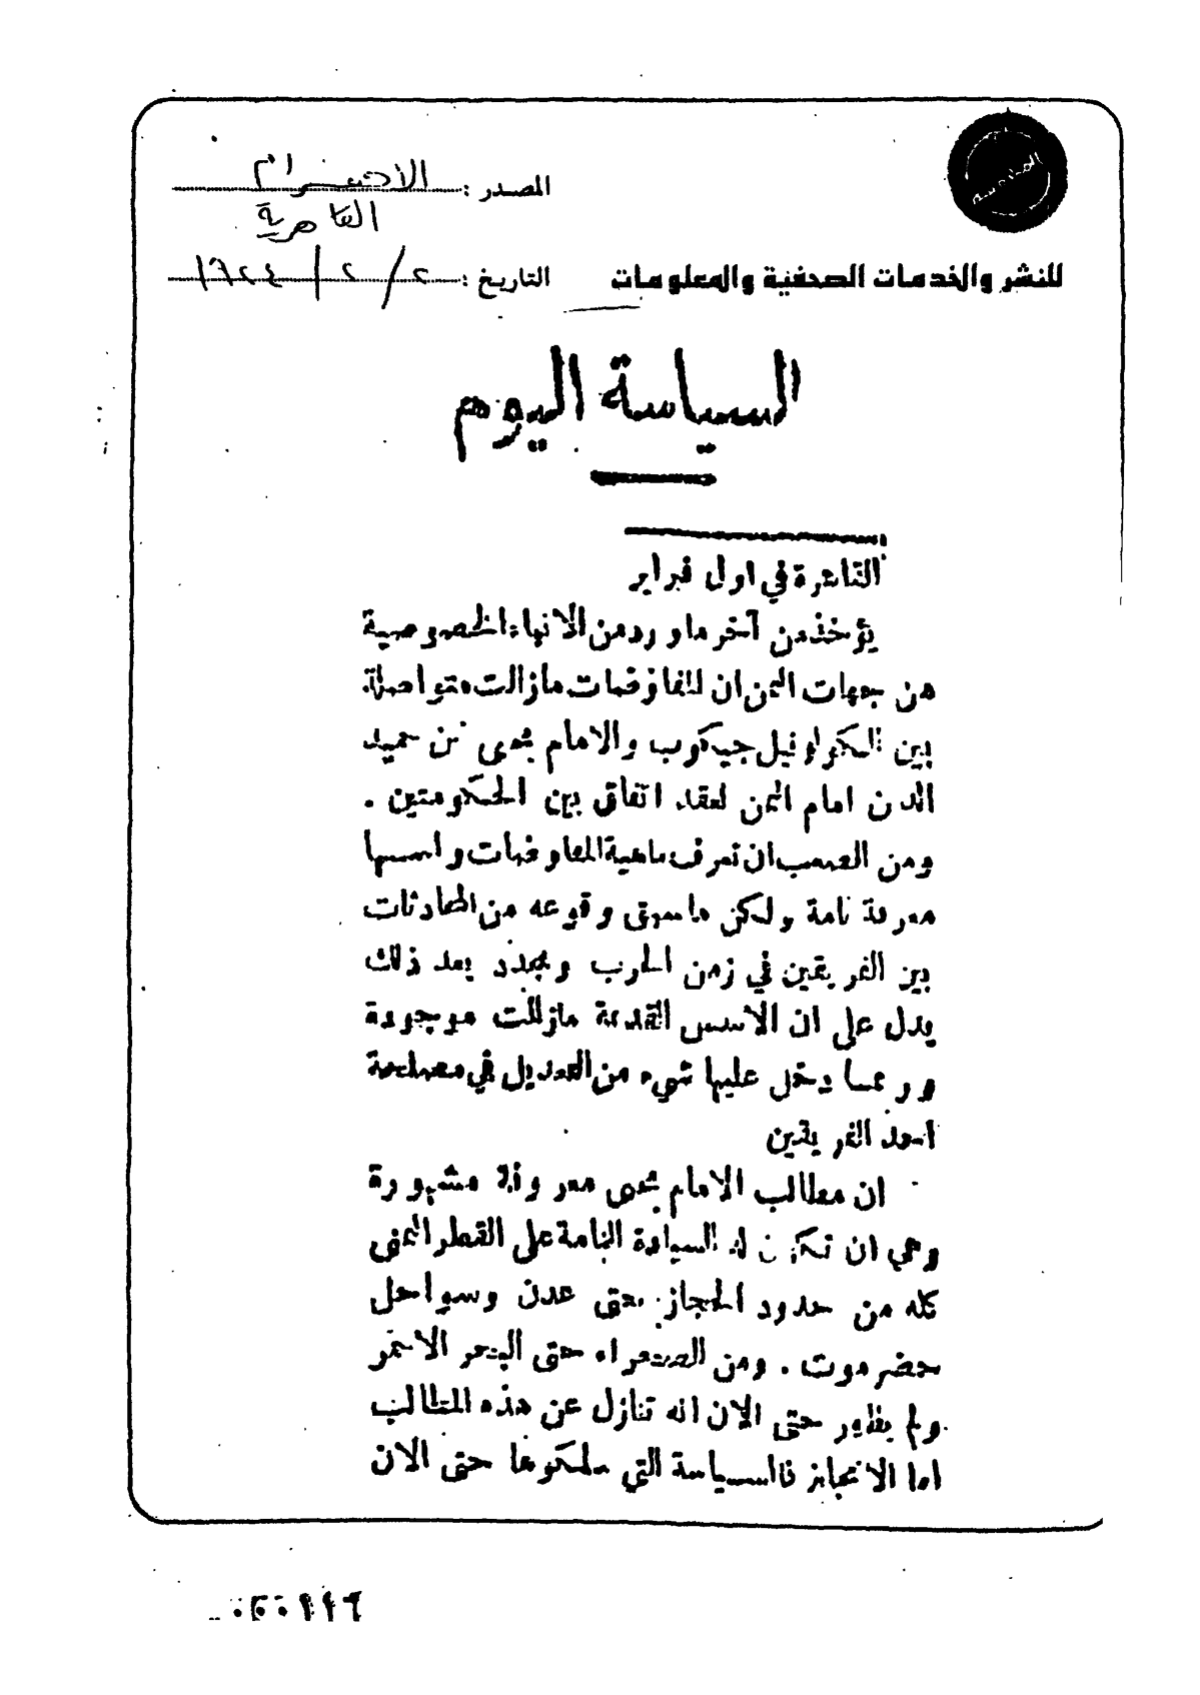 المصدر : الاهرام
القاهرية
للنشر والخدمات الصحفية والمعلومات
التاريخ : ٢ / ٢ / ١٩٢٤
السياسة اليوم
القاهرة في اول فبراير
يؤخذ من آخر ما ورد من الانباء الخصوصية
من جهات اليمن ان المفاوضات مازالت متواصلة
بين الكولونيل جيكوب والامام يحيى بن حميد
الدين امام اليمن لعقد اتفاق بين الحكومتين .
ومن الصعب ان تعرف ماهية المفاوضات واسسها
معرفة تامة ولكن ما سبق وقوعه من المحادثات
بين الفريقين في زمن الحرب وتجدد بعد ذلك
يدل على ان الاسس القديمة مازالت موجودة
وربما دخل عليها شيء من التعديل في مصلحة
احد الفريقين
ان مطالب الامام يحيى معروفة مشهورة
وهي ان تكون له السيادة التامة على القطر اليمنى
كله من حدود الحجاز حتى عدن وسواحل
حضرموت . ومن الصحراء حتى البحر الاحمر
ولم يظهر حتى الان انه تنازل عن هذه المطالب
اما الانجليز فالسياسة التي سلكوها حتى الان